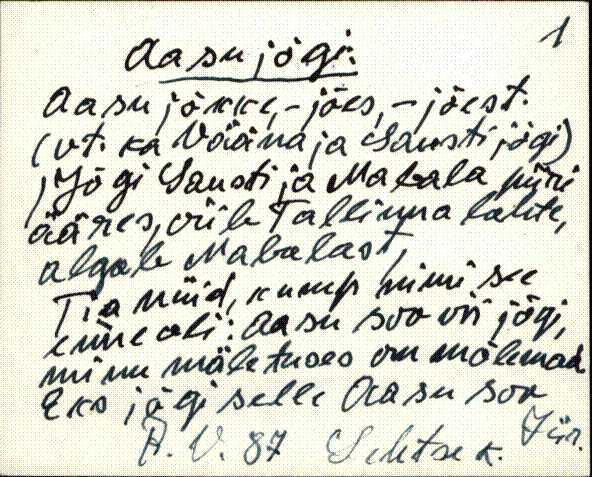 1
Aasu jõgi.
Aasu jõkke, - jões, - jõest.
(vt. ka Vääna ja Sausti jõgi)
Jõgi Sausti ja Mabala piiri
ääres, viib Tallinna lahte,
algab Mabalast,
Tia nüüd, kump nimi see
enne oli: Aasu soo või jõgi,
minu mäletuses on mõlemad
Eks jõgi selle Aasu soo
A. V. 87 k. Jür.